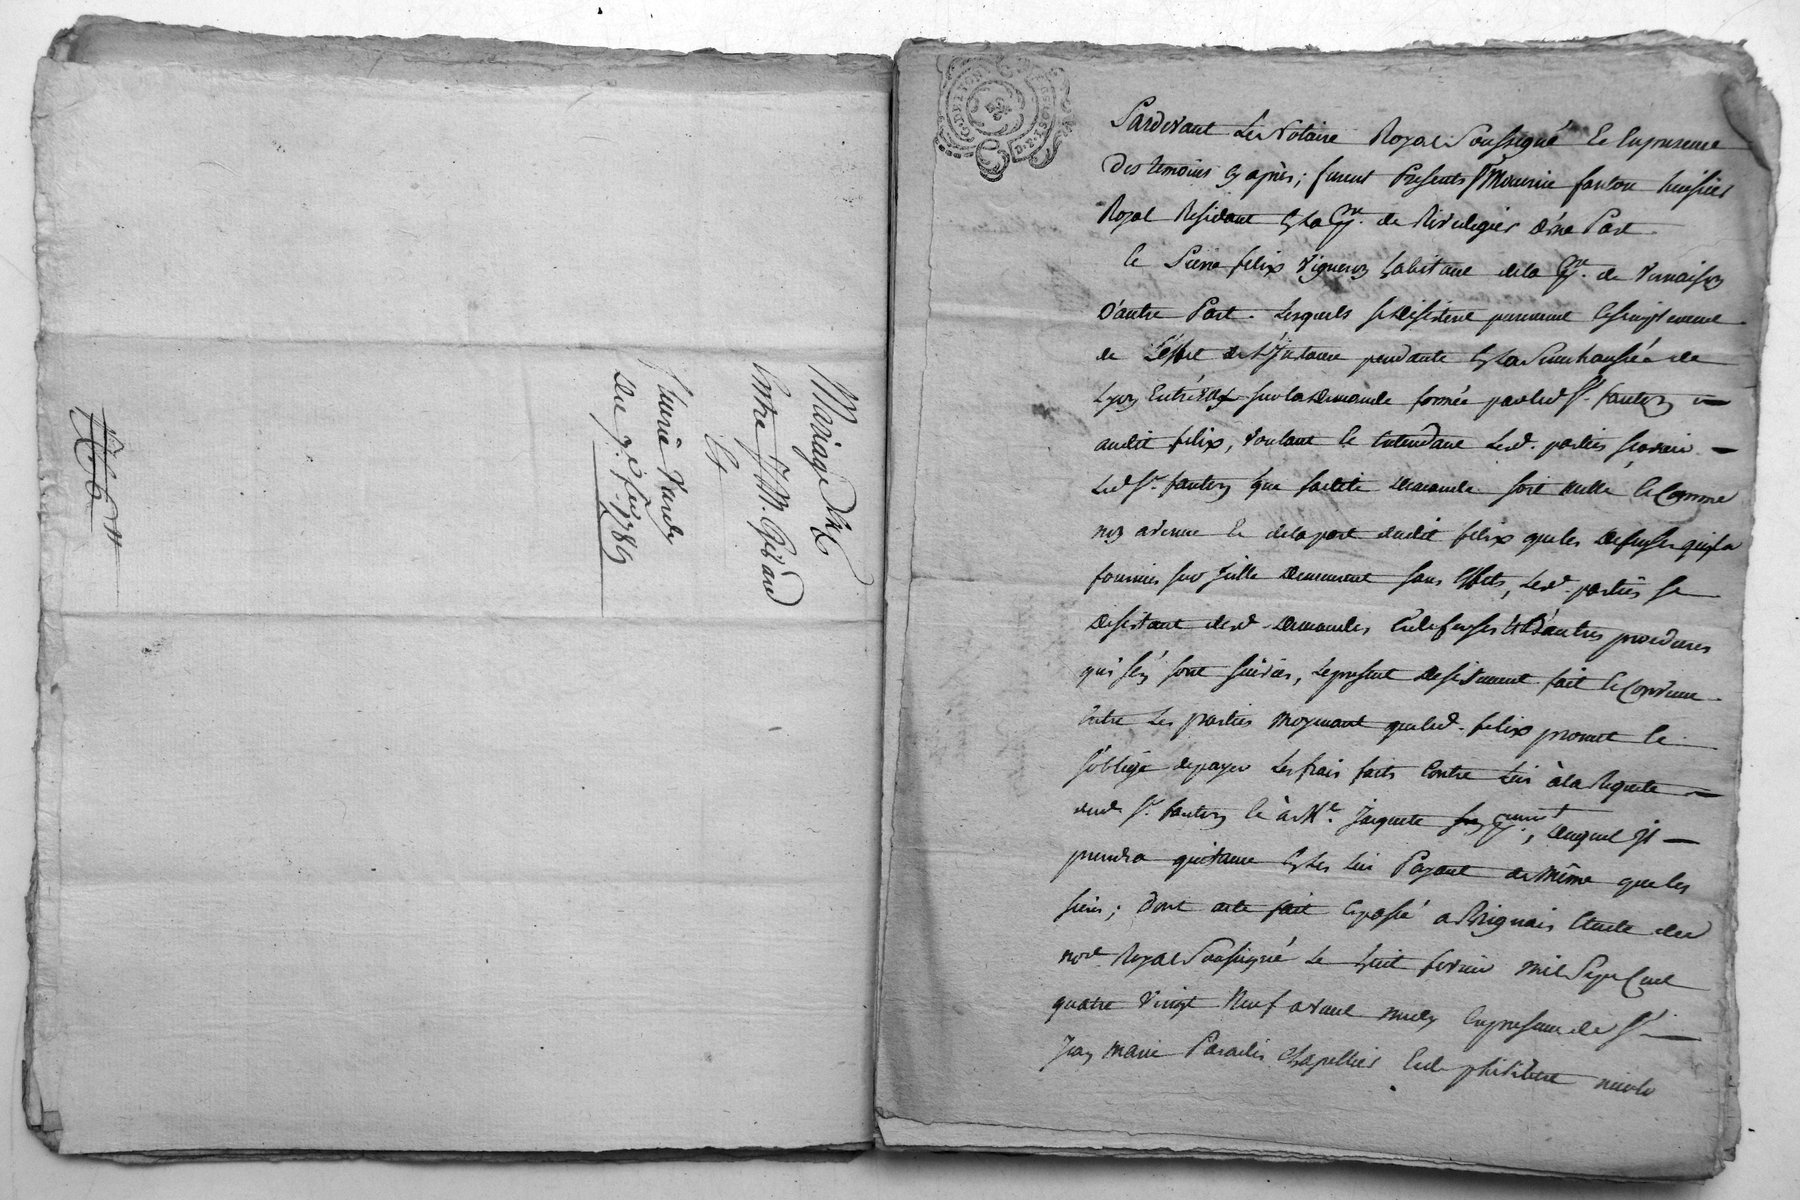 Mariage
Entre J. M. Girard
Et
Du 7e fev. 1789
G. DE LYON
Pardevant Le Notaire Royal Soussigné Et En presence
Des temoins Cy après; furent Presents Maurice fanton huissier
Royal Residant En la psse. de Riverie D'une Part
Le Pierre felix Vigneron habitant de la psse. de Vernaison
D'autre Part. Lesquels se Desistent purement Et simplement
de L'effet de L'Instance pendante En la Senechaussée de
Lyon Entr'eux sur la Demande formée par led Sr. fanton
audit felix, voulant Et Entendant Lesd. parties scavoir
Led Sr. fanton que sa dite Demande soit nulle Et Comme
non avenue Et de la part dudit felix que les Defenses qu'il a
fournies sur Icelle Demeurent sans Effets, Lesd. parties se
Desistant desd. Demandes, Et defenses Et D'autres procedures
qui s'en sont suivies, Le present Desistement fait Et Convenu
Entre Les parties Moyenant que led. felix promet Et
s'oblige de payer Les frais faits Contre Lui à la Requete
dud Sr. fanton Et à Me. Jacquete, duquel Il
prendra quittance En Les Lui Payant de Même que les
siens; Dont acte fait Et passé a Brignais Etude du
nore. Royal Soussigné Le huit fevrier mil Sept Cent
quatre Vingt Neuf avant midy En presence de Sr.
Jean Marie Paradis Chapellier Et de philibert